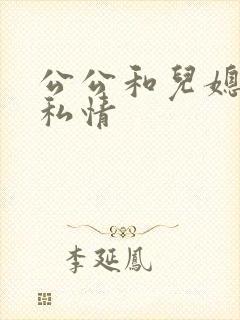 公公和兒媳
私情
李延鳳